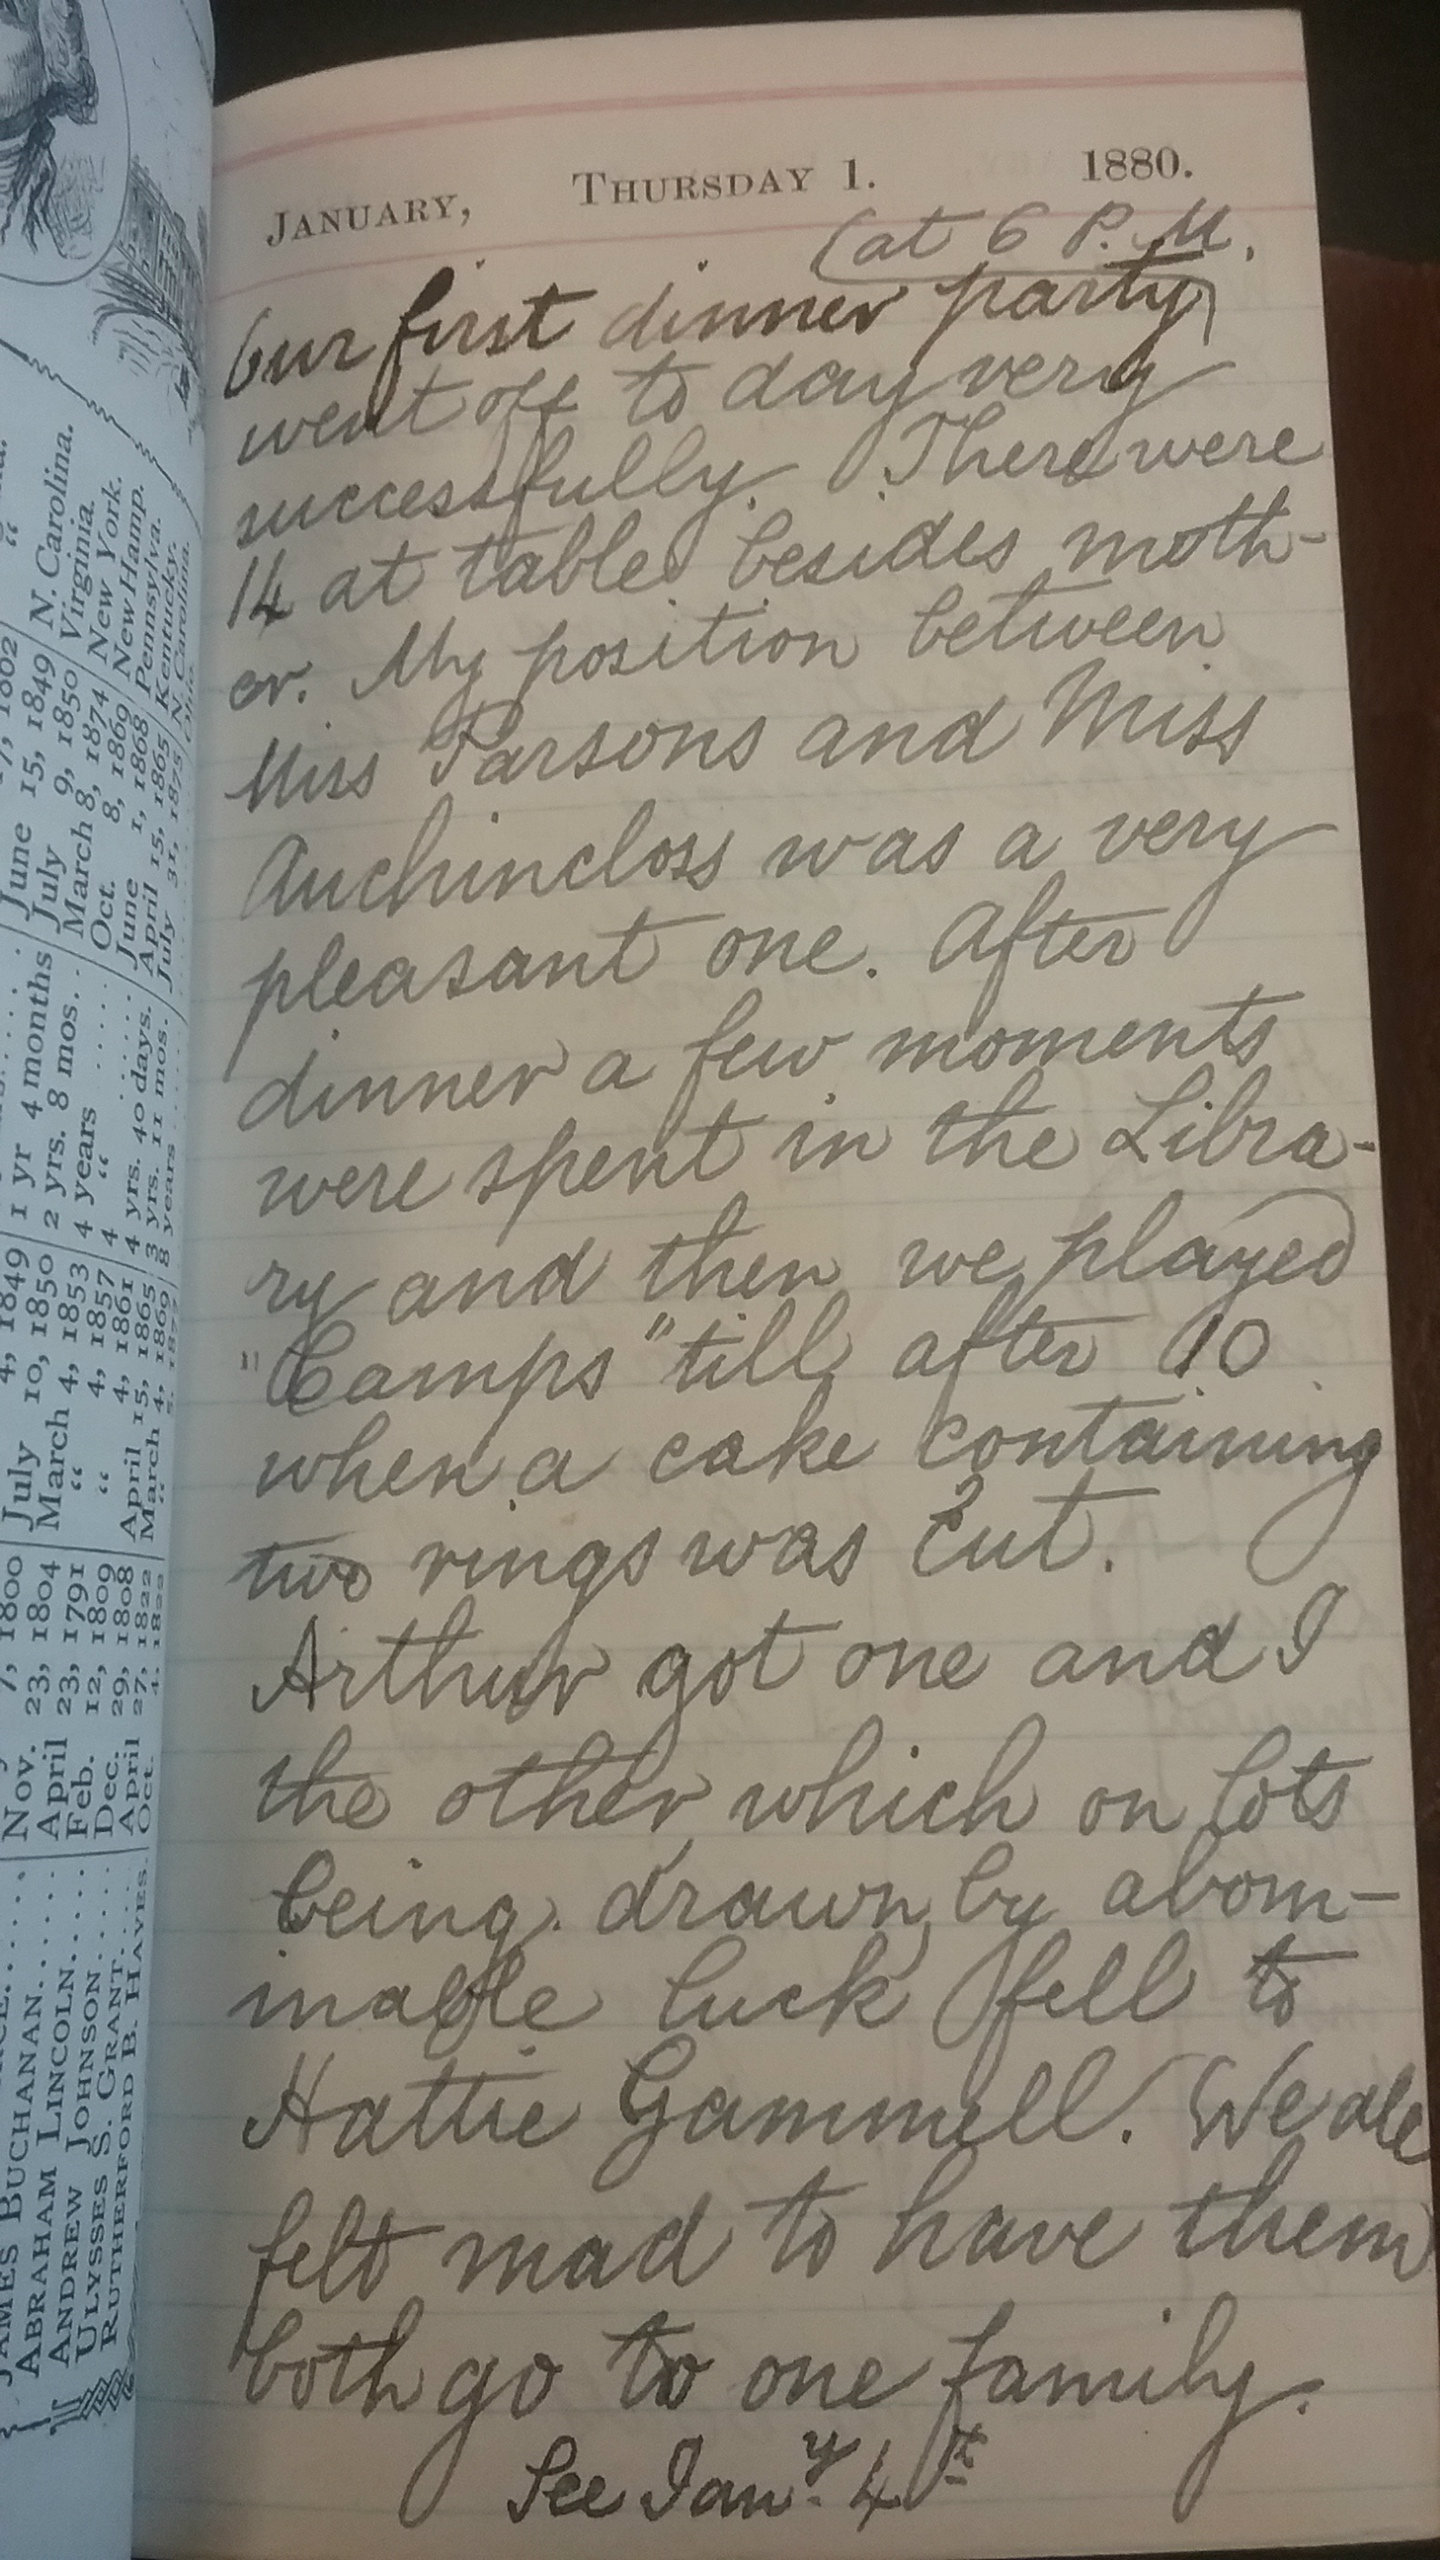 JANUARY, THURSDAY 1. 1880.
(at 6 P.M.
Our first dinner party)
went off to day very
successfully. There were
14 at table besides moth-
er. My position between
Miss Parsons and Miss
Auchincloss was a very
pleasant one. After
dinner a few moments
were spent in the Libra-
ry and then we played
"Camps" till after 10
when a cake containing
two rings was cut.
Arthur got one and I
the other, which on lots
being drawn by abom-
inable luck fell to
Hattie Gammell. We all
felt mad to have them
both go to one family.
See Jany. 4th
N. Carolina.
June 15, 1849
Virginia.
July 10, 1850 2 yrs. 8 mos. July 9, 1850
New York.
April 23, 1791 March 4, 1857 4 years March 8, 1874
New Hamp.
Nov. 23, 1804 March 4, 1853 4 years Oct. 8, 1869
Pennsylva.
JAMES BUCHANAN April 23, 1791 4, 1857 4 June 1, 1868
Kentucky.
ABRAHAM LINCOLN Feb. 12, 1809 4, 1861 4 yrs. 40 days. April 15, 1865
N. Carolina.
ANDREW JOHNSON Dec. 29, 1808 April 15, 1865 3 yrs. 11 mos. July 31, 1875
Ohio.
ULYSSES S. GRANT April 27, 1822 March 4, 1869 8 years
RUTHERFORD B. HAYES. Oct. 4, 1822